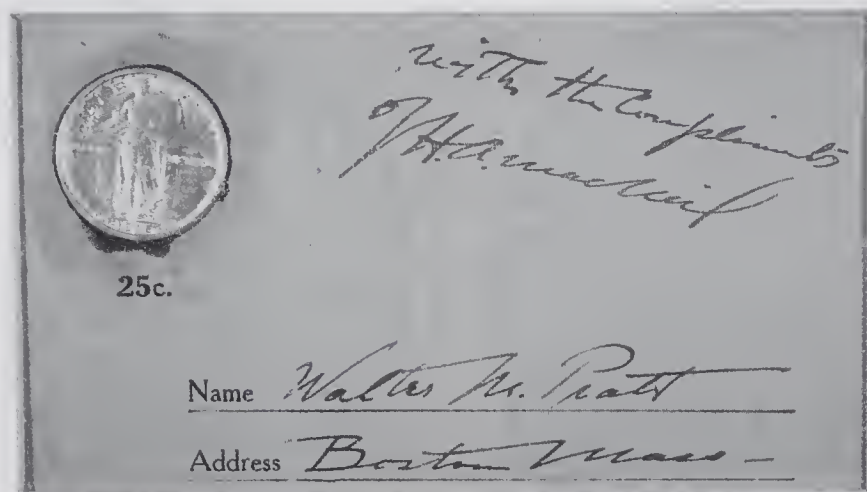 with the Compliments
of H.A. MacNeil
25c.
Name Walter M. Pratt
Address Boston Mass -